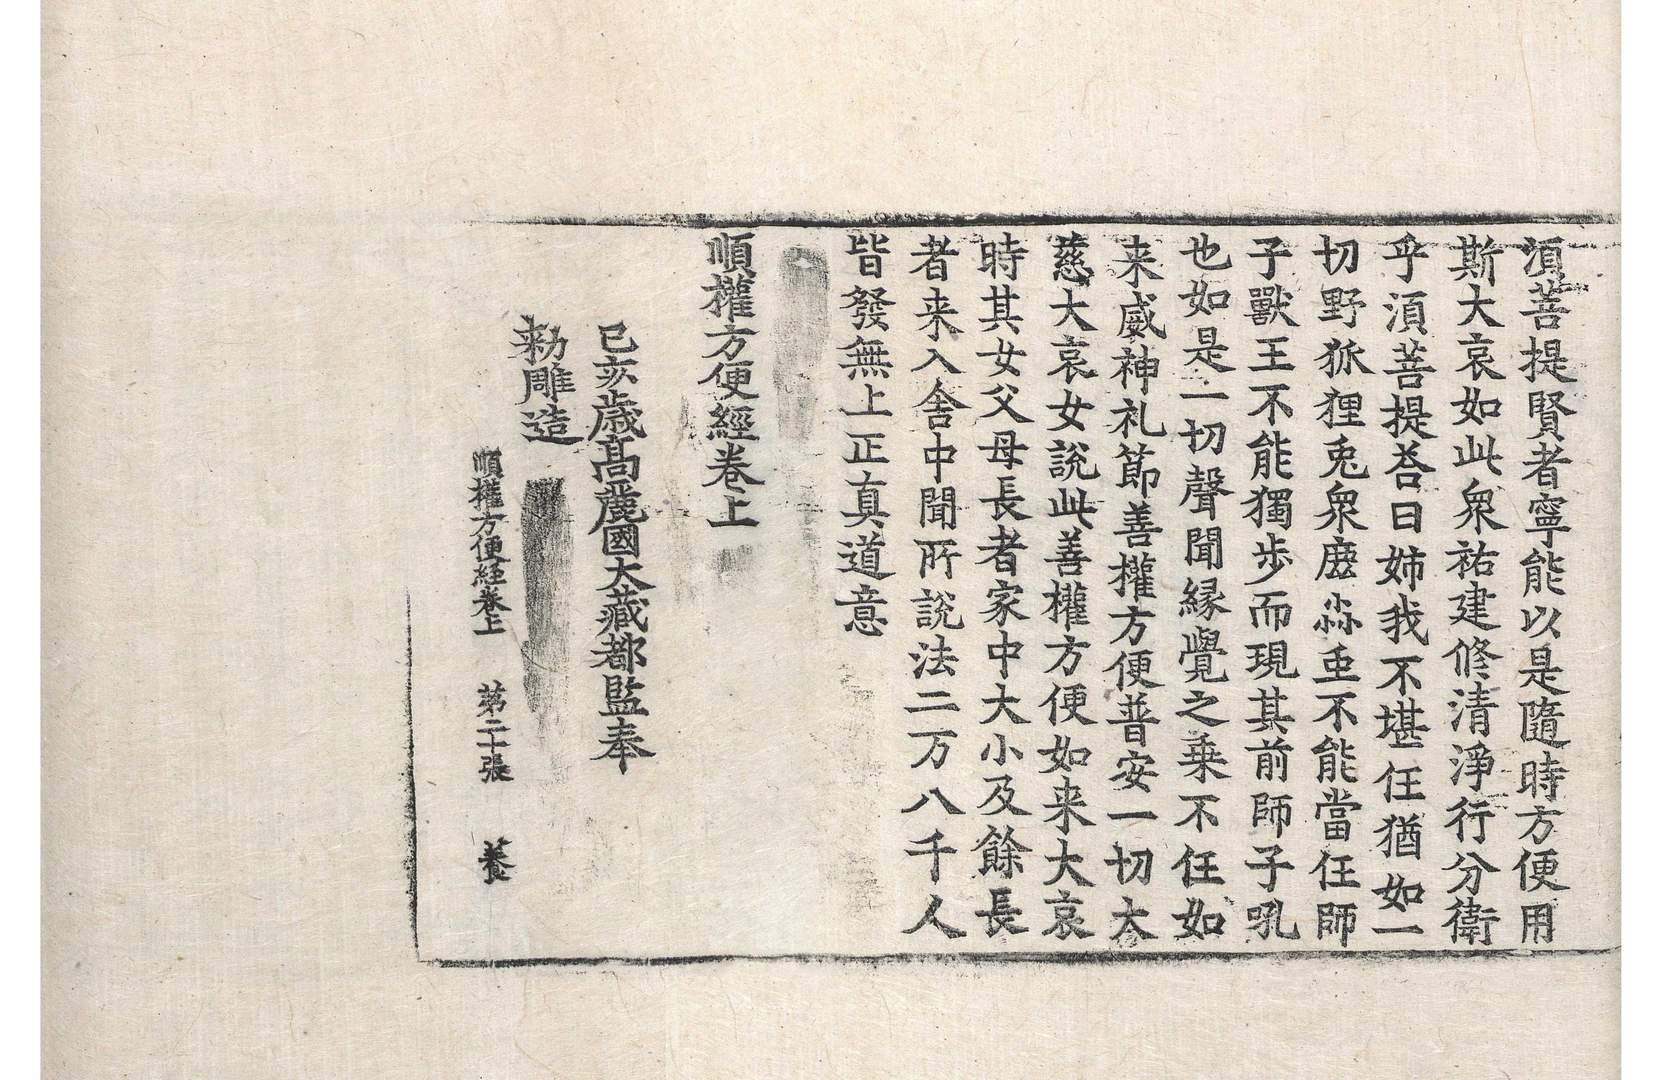 湏菩提賢者寧能以是隨時方便用
斯大哀如此衆祐建修清淨行分衛
乎湏菩提荅曰姉我不堪任猶如一
切野狐狸兎衆麈不能當任師
子獸王不能獨步而現其前師子吼
也如是一切聲聞縁覺之乗不任如
来威神礼節善權方便普安一切大
慈大哀女說此善權方便如来大哀
時其女父母長者家中大小及餘長
者来入舍中聞所說法二万八千人
皆發無上正真道意
順權方便經卷上
己亥歳高麗國大藏都監奉
勑雕造
順權方便経卷上 第二十張 養